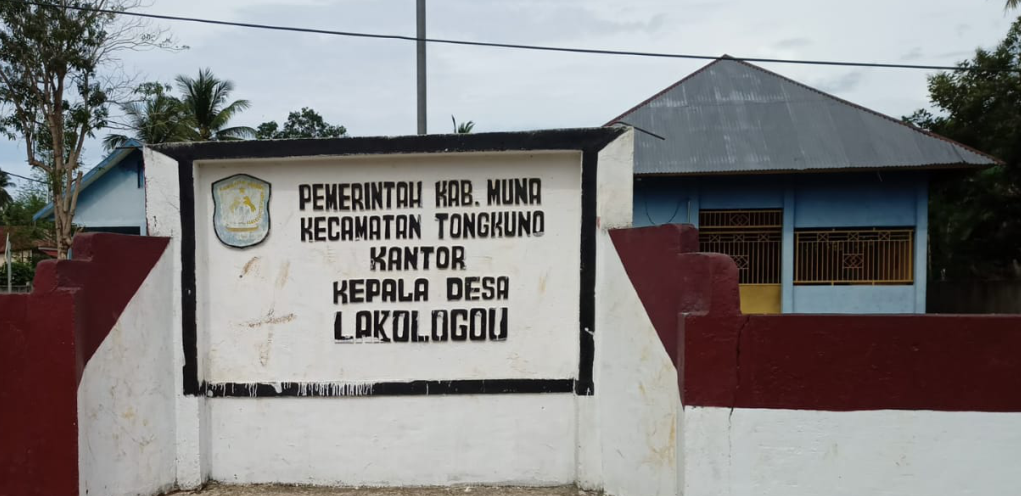 PEMERINTAH KAB. MUNA
KECAMATAN TONGKUNO
KANTOR
KEPALA DESA
LAKOLOGOU